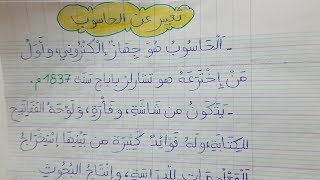 تعبير عن الحاسوب
- اَلْحَاسُوبُ هُوَ جِهَازٌ إِلِكْتْرُونِي، وَأَوَّلُ
مَنْ اِخْتَرَعَهُ هُوَ تْشَارْلِزْ بَابَاجْ سَنَةَ 1837م.
- يَتَكَوَّنُ مِنْ شَاشَةٍ، وَفَأْرَةٍ، وَلَوْحَةُ المَفَاتِيحِ
لِلْكِتَابَةِ، وَلَهُ فَوَائِدٌ كَثِيرَةٌ مِنْ بَيْنِهَا اِسْتِخْرَاجُ
الْمَعْلُومَاتِ لِلدِّرَاسَةِ، وَإِنْتَاجُ الْبُحُوثِ